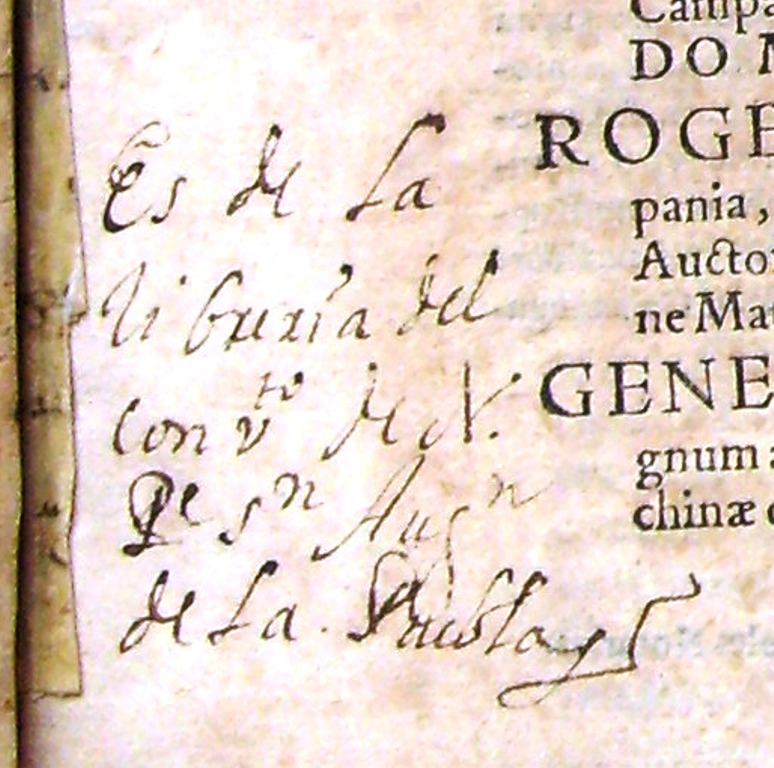 Campa
DO M
ROGE
pania,
Aucto
ne Mat
GENE
gnum a
chinæ
Es de La
libreria del
conv.to de N.
Pe sn Augn
de La Puebla